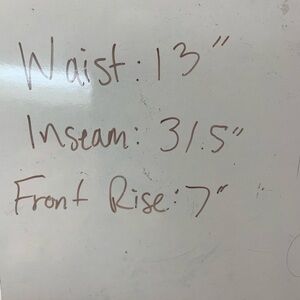 Waist: 13"
Inseam: 31.5"
Front Rise: 7"